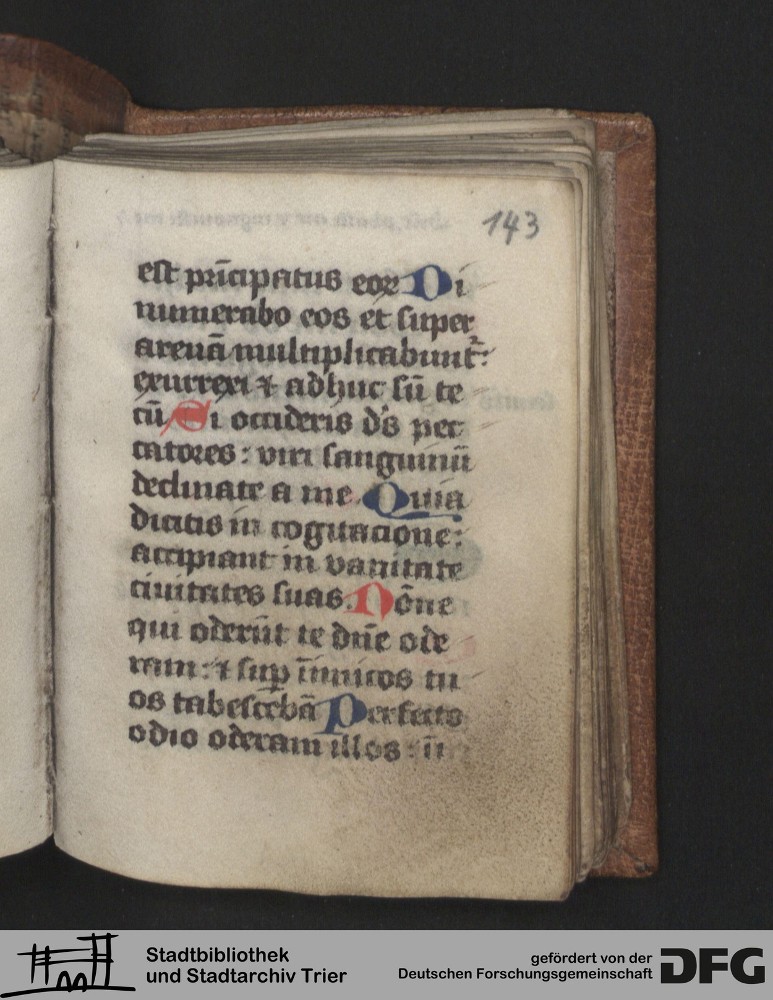 143
est pⁱncipatus eoꝝ Di
numerabo eos et super
arenā multiplicabunt᷑:
exurrexi ⁊ adhuc sū te
cū Si occideris ds̄ pec
catores : viri sanguinū
declinate a me Quia
dicitis in cogitacione :
accipiant in vanitate
ciuitates suas. Nōne
qui oderūt te dn̄e ode
ram : ⁊ sup̄ īimicos tu
os tabescebā Perfecto
odio oderam illos : ii
Stadtbibliothek
und Stadtarchiv Trier
gefördert von der
Deutschen Forschungsgemeinschaft
DFG